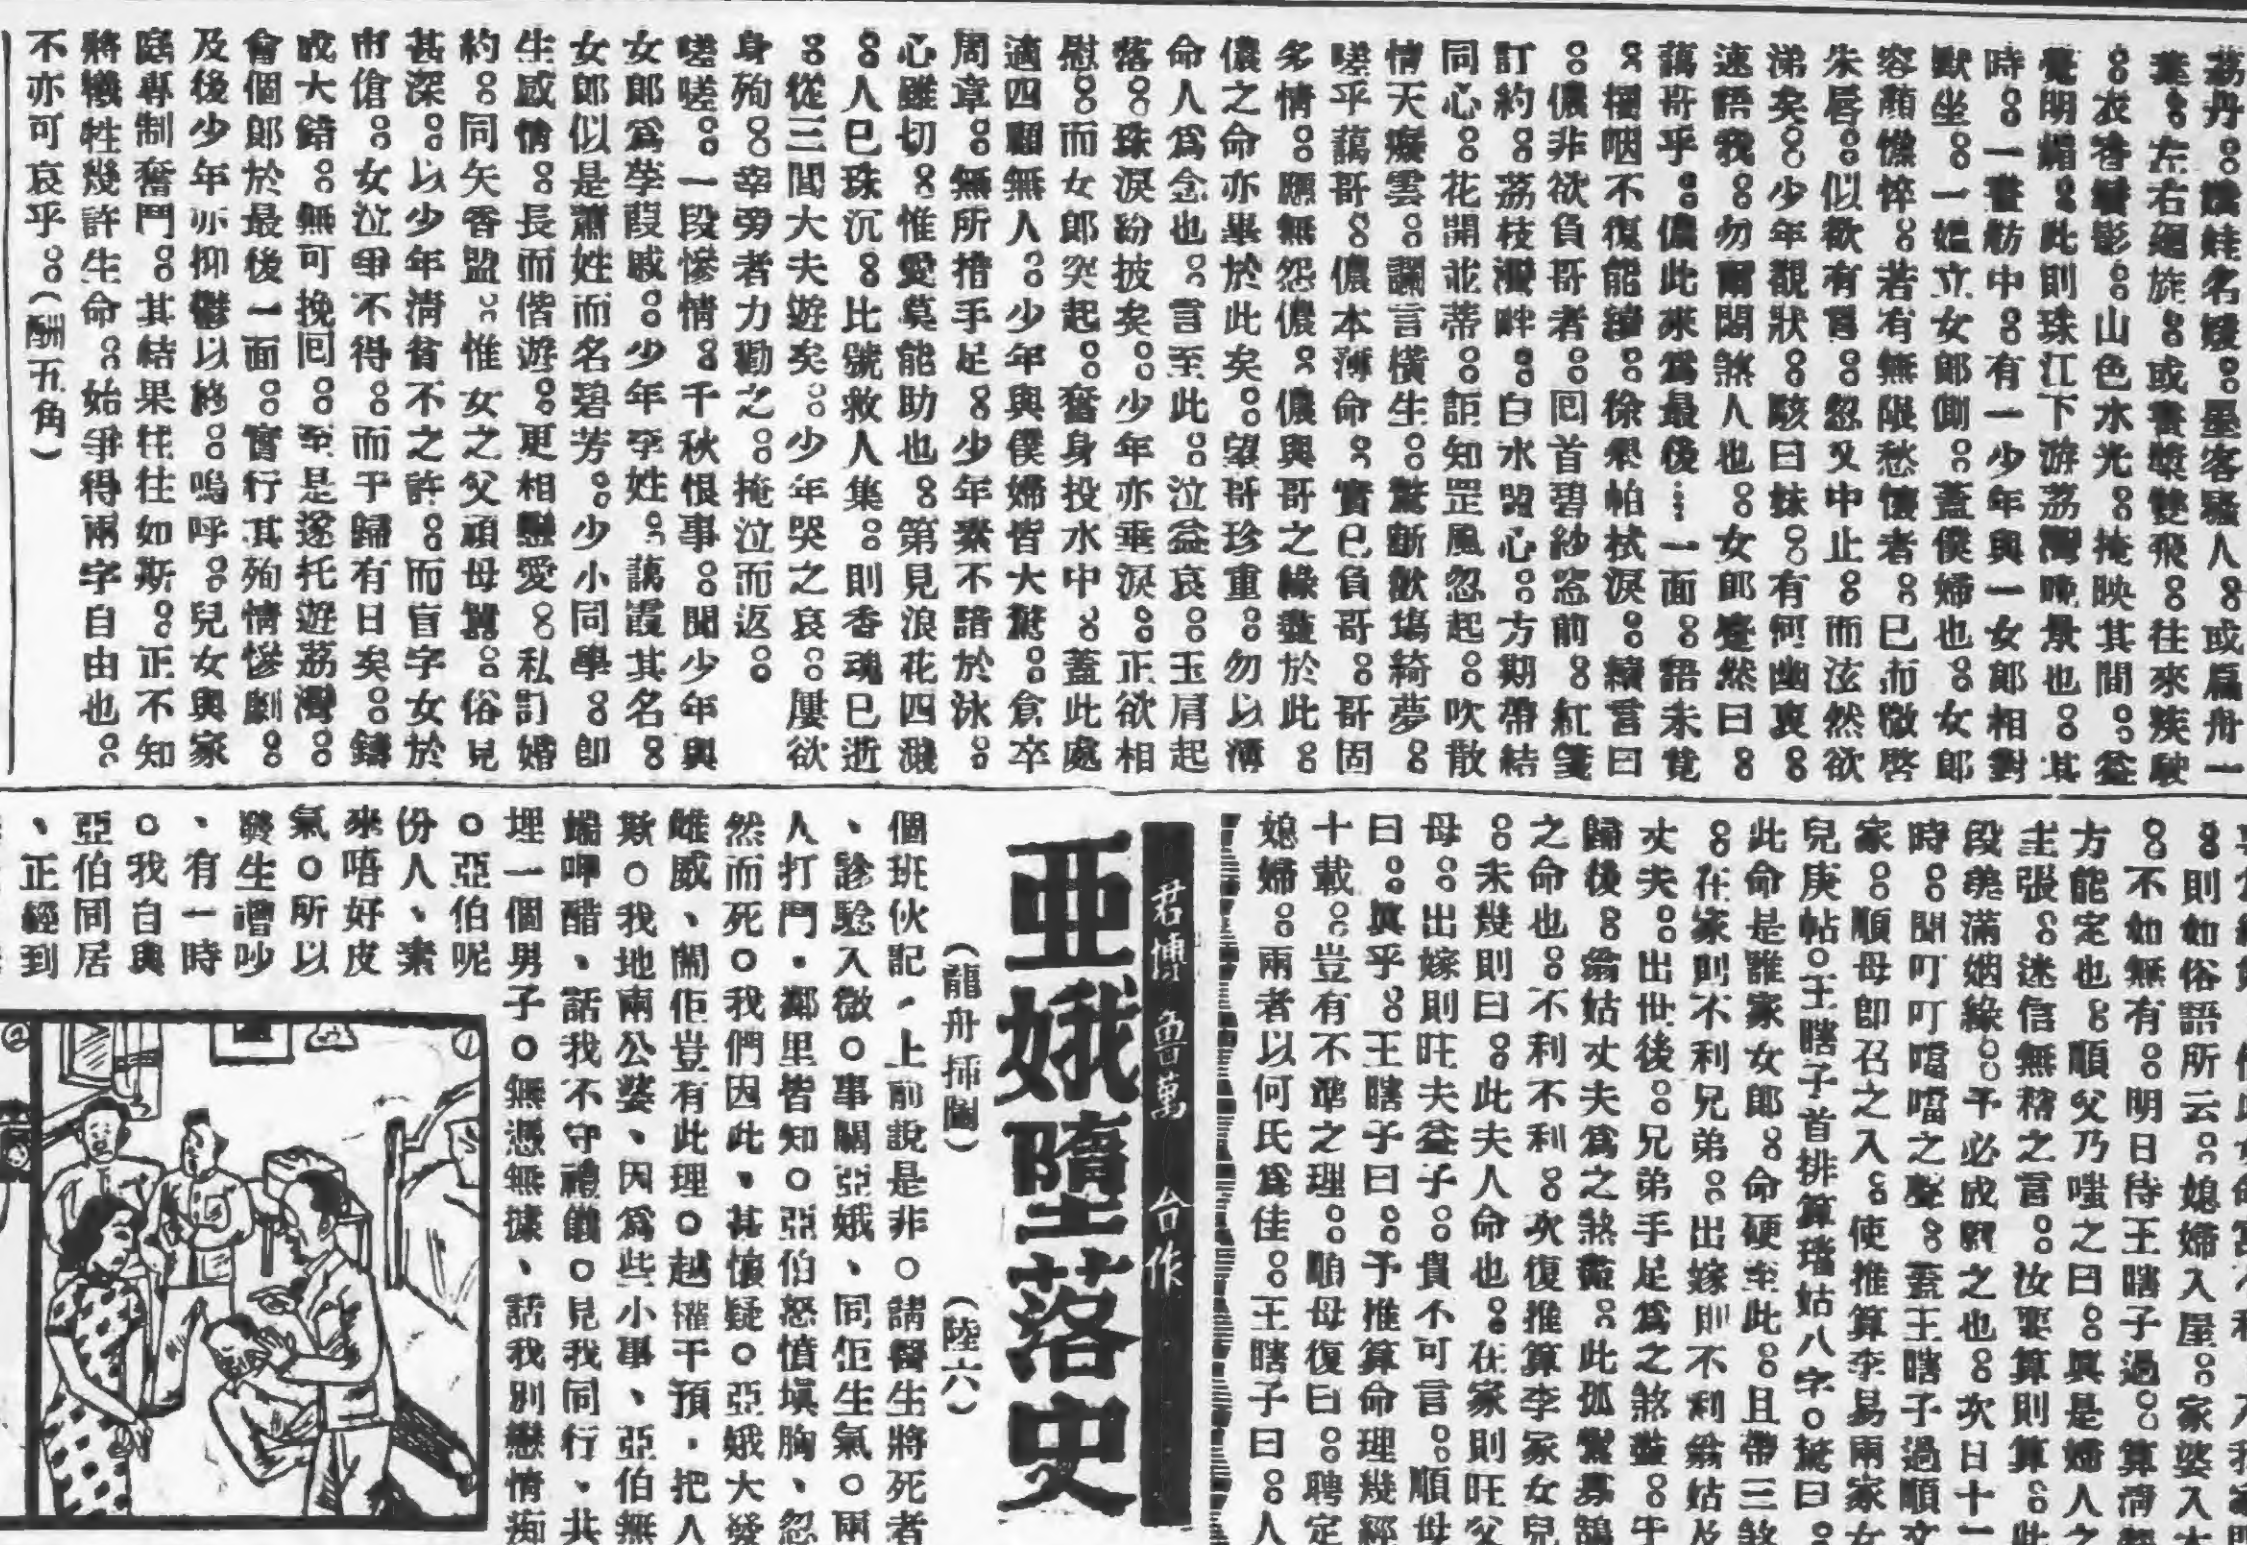 荔丹。嬌娃名媛。墨客騷人。或扁舟一
葉。左右迴旋。或畫槳雙飛。往來疾駛
。衣香鬢影。山色水光。掩映其間。益
覺明媚。此則珠江下游荔灣晚景也。其
時。一畫舫中。有一少年與一女郎相對
默坐。一媼立女郎側。蓋僕婦也。女郎
容顏憔悴。若有無限愁懷者。已而微啓
朱唇。似欲有言。忽又中止。而泫然欲
涕矣。少年覩狀。駭曰妹。有何幽衷。
速語我。勿爾悶煞人也。女郎蹙然曰。
藹哥乎。儂此來爲最後…一面。語未竟
。咽不復能續。徐舉帕拭淚。續言曰
。儂非欲負哥者。回首碧紗窓前。紅箋
訂約。荔枝灣畔。白水盟心。方期帶結
同心。花開並蒂。詎知罡風忽起。吹散
情天癡雲。讕言橫生。驚斷歡塲綺夢。
嗟乎藹哥。儂本薄命。實已負哥。哥固
多情。願無怨儂。儂與哥之緣盡於此。
儂之命亦畢於此矣。望哥珍重。勿以薄
命人爲念也。言至此。泣益哀。玉肩起
落。珠淚紛披矣。少年亦垂淚。正欲相
慰。而女郎突起。奮身投水中。蓋此處
適四顧無人。少年與僕婦皆大驚。倉卒
周章。無所措手足。少年素不諳於泳。
心雖切。惟愛莫能助也。第見浪花四濺
。人已珠沉。比號救人集。則香魂已逝
。從三閭大夫遊矣。少年哭之哀。屢欲
身殉。幸旁者力勸之。掩泣而返。
嗟嗟。一段慘情。千秋恨事。聞少年與
女郎爲莩葭戚。少年李姓。藹霞其名。
女郎似是蕭姓而名碧芳。少小同學。即
生感情。長而偕遊。更相戀愛。私訂婚
約。同矢香盟。惟女之父頑母嚚。俗見
甚深。以少年淸貧不之許。而盲字女於
市儈。女泣爭不得。而于歸有日矣。鑄
成大錯。無可挽囘。至是遂托遊荔灣。
會個郎於最後一面。實行其殉情慘劇。
及後少年亦抑鬱以終。嗚呼。兒女與家
庭專制奮鬥。其結果往往如斯。正不知
將犧牲幾許生命。始爭得兩字自由也。
不亦可哀乎。(酬五角)
。則如俗語所云。媳婦入屋。家婆入木
。不如無有。明日待王瞎子過。算淸
方能定也。順父乃嗤之曰。眞是婦人之
主張。迷信無稽之言。汝要算則算。此
段美滿姻緣。予必成就之也。次日十一
時。聞叮叮噹噹之聲。蓋王瞎子過順文
家。順母即召之入。使推算李易兩家女
兒庚帖。王瞎子首排算瑤姑八字。驚曰。
此命是誰家女郎。命硬至此。且帶三煞
。在家則不利兄弟。出嫁則不利翁姑及
丈夫。出世後。兄弟手足爲之煞盡。于
歸後。翁姑丈夫爲之煞盡。此孤鸞寡鵠
之命也。不利不利。次復推算李家女兒
。未幾則曰。此夫人命也。在家則旺父
母。出嫁則旺夫益子。貴不可言。順母
曰。眞乎。王瞎子曰。予推算命理幾經
十載。豈有不準之理。順母復曰。聘定
媳婦。兩者以何氏爲佳。王瞎子曰。人
君博魯萬 合作
亜娥墮落史
(龍舟揷圖) (陸六)
個班伙記，上前說是非。請醫生將死者
、診騐入微。事關亞娥、同佢生氣。兩
人打鬥，鄰里皆知。亞伯怒憤塡胸、忽
然而死。我們因此、甚懷疑。亞娥大發
雌威、鬧佢豈有此理。越權干預，把人
欺。我地兩公婆、因爲些小事、亞伯無
端呷醋、話我不守禮儀。見我同行、共
埋一個男子。無憑無據、話我別戀情痴
。亞伯呢
份人、素
來唔好皮
氣。所以
發生嘈吵
、有一時
。我自與
亞伯同居
、正經到
①
②